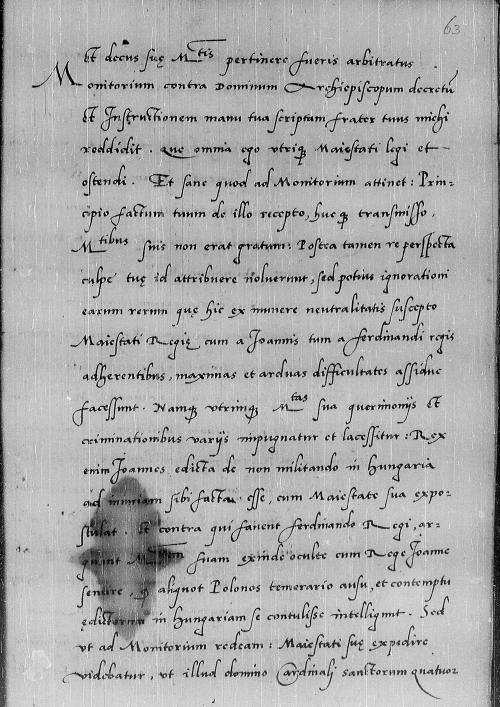 63
Et decus suę M<sup>tis</sup> pertinere fueris arbitratus
Monitorium contra Dominum Archiepiscopum decretū
Et Instructionem manu tua scriptam frater tuus michi
reddidit. Quę omnia ego vtriqʒ Maiestati legi et
ostendi. Et sane quod ad Monitorium attinet: Prin-
cipio factum tuum de illo recepto, hucqʒ transmisso,
M<sup>tibus</sup> suis non erat gratum: Postea tamen re perspecta
culpę tuę id attribuere noluerunt, sed potius ignorationi
earum rerum quę hic ex munere neutralitatis suscepto
Maiestati Regię cum a Joannis tum a ferdinandi regis
adherentibus, maximas et arduas difficultates assidue
facessunt. Namqʒ vtrinqʒ M<sup>tas</sup> sua querimonijs Et
criminationibus varijs impugnatur et lacessitur: Rex
enim Joannes edicta de non militando in hungaria
ad iniuriam sibi facta esse, cum Maiestate sua expo-
stulat. Et contra qui fauent ferdinando Regi, ar-
guunt M<sup>tem</sup> suam exinde oculte cum Rege Joanne
sentire, aliquot Polonos temerario ausu, et contemptu
ędictorum in hungariam se contulisse intelligunt. Sed
vt ad Monitorium redeam: Maiestati suę expedire
videbatur, vt illud domino Cardinali sanctorum quatuor